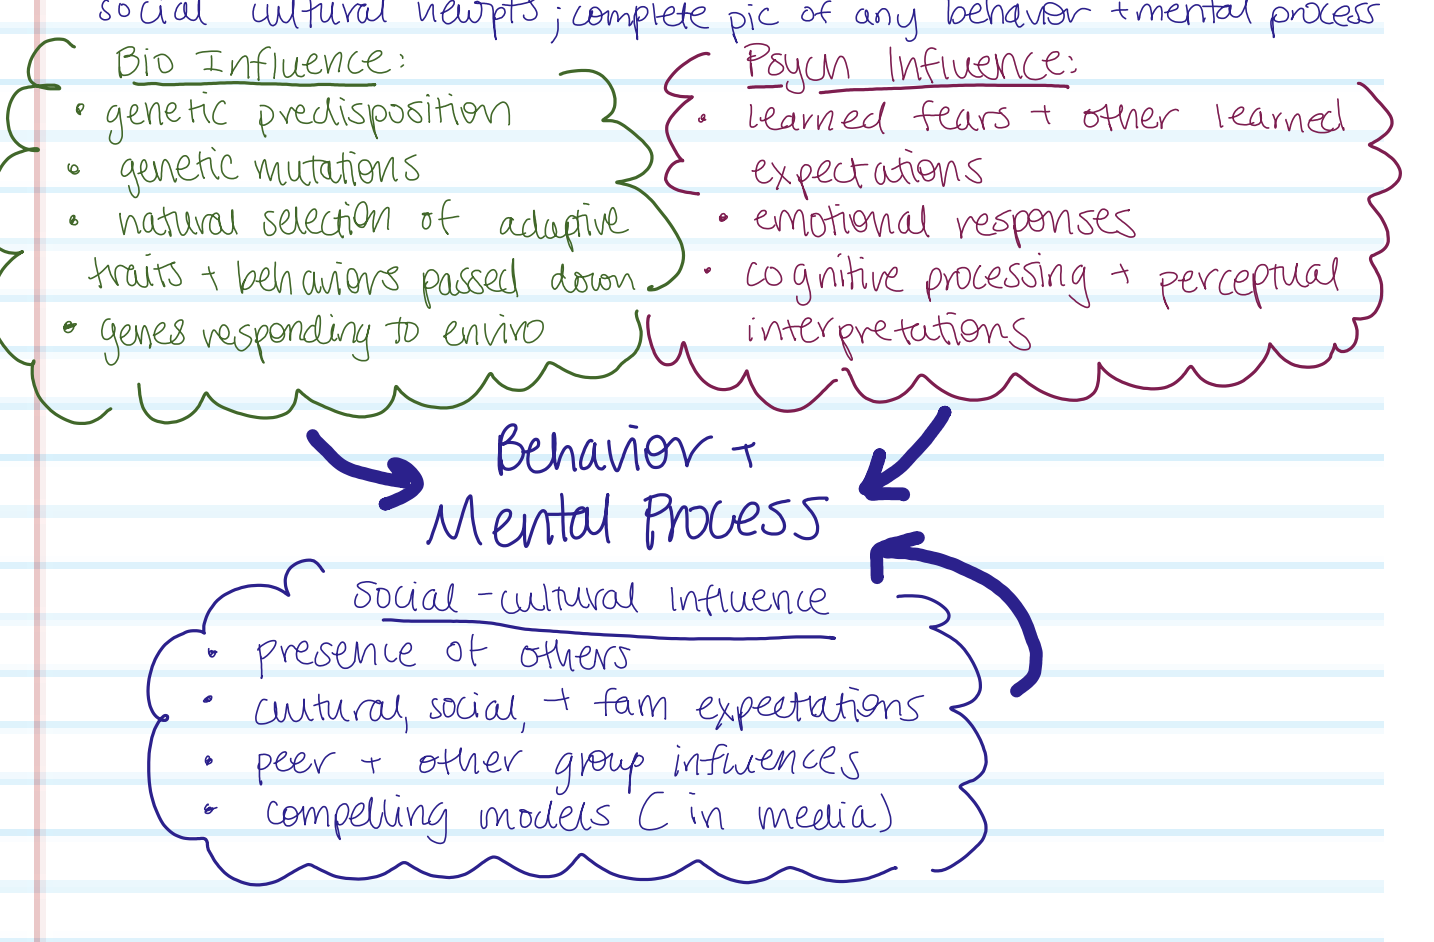 social cultural viewpts; complete pic of any behavior + mental process
Bio Influence:
• genetic predisposition
• genetic mutations
• natural selection of adaptive
traits + behaviors passed down
• genes responding to enviro
Psych Influence:
• learned fears + other learned
expectations
• emotional responses
• cognitive processing + perceptual
interpretations
Behavior +
Mental Process
Social-cultural Influence
• presence of others
• cultural, social, + fam expectations
• peer + other group influences
• compelling models (in media)